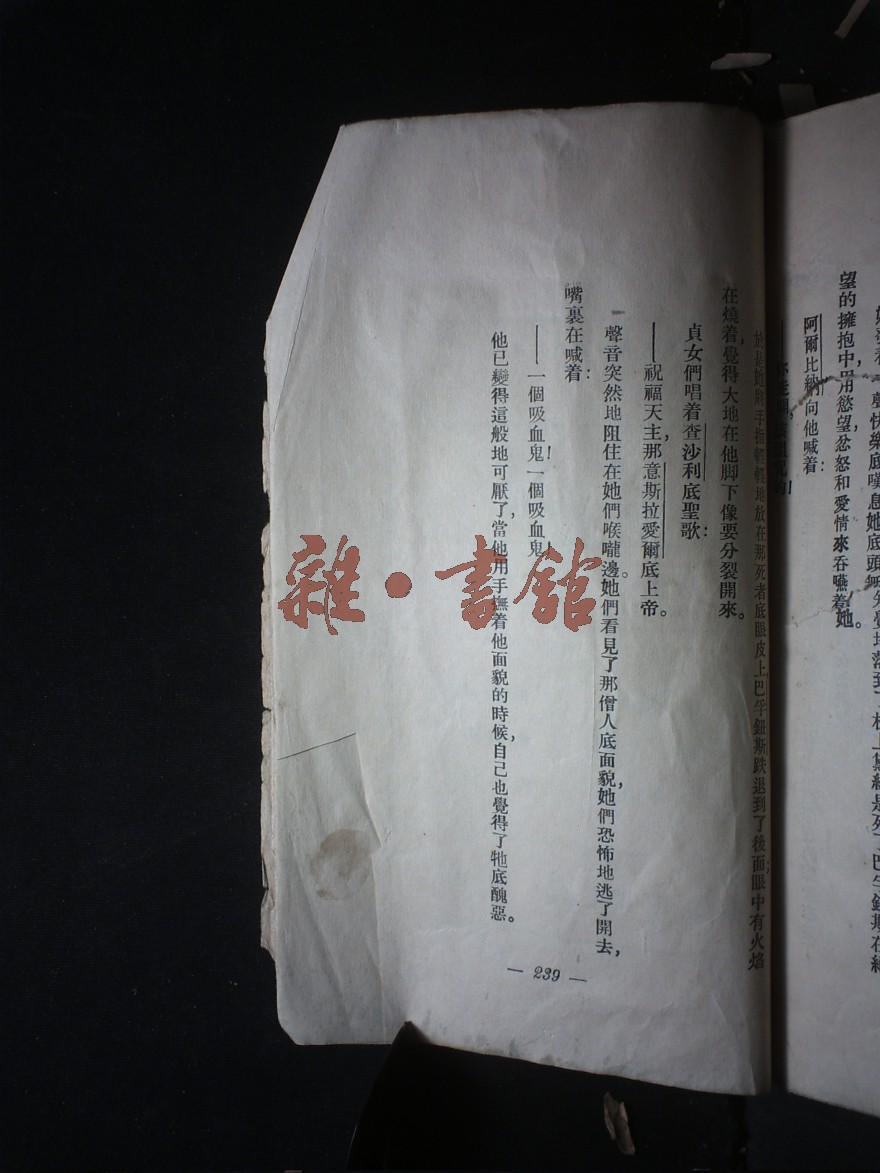 聲快樂底嘆息她底頭
望的擁抱中用慾望忿怒和愛情來吞嚥着她。
阿爾比納向他喊着：
手撫輕輕地放在那死者底眼皮上巴孚鈕斯跌退到了後面眼中有火焰
在燒着，覺得大地在他脚下像要分裂開來。
貞女們唱着查沙利底聖歌：
——祝福天主，那意斯拉愛爾底上帝。
聲音突然地阻住在她們喉嚨邊。她們看見了那僧人底面貌，她們恐怖地逃了開去，
嘴裏在喊着：
——一個吸血鬼！一個吸血鬼！
他已變得這般地可厭了，當他用手撫着他面貌的時候，自己也覺得了牠底醜惡。
— 239 —
雜·書館